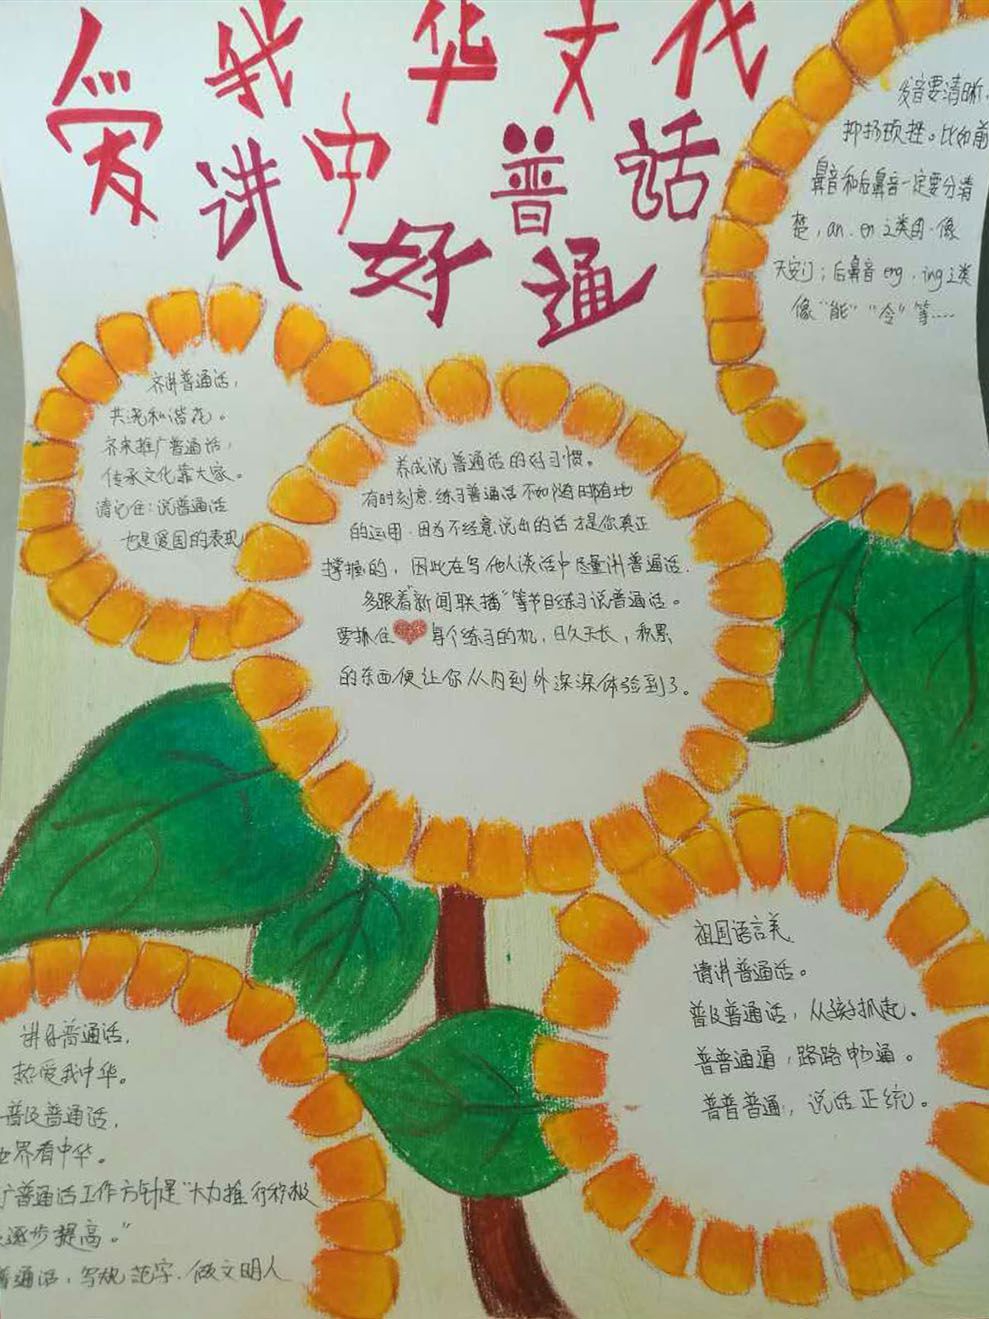 爱我中华文化
讲好普通话
发音要清晰、
抑扬顿挫。比如前
鼻音和后鼻音一定要分清
楚，an、en之类因·像
天安门；后鼻音eng、ing之类
像“能”“令”等……
齐讲普通话，
共浇和谐花。
齐来推广普通话，
传承文化靠大家。
请记住：说普通话
也是爱国的表现
养成说普通话的好习惯。
有时刻意练习普通话不如随时随地
的运用．因为不经意说出的话才是你真正
掌握的，因此在与他人谈话中尽量讲普通话．
多跟着“新闻联播”等节目练习说普通话。
要抓住每个练习的机，日久天长，积累
的东西便让你从内到外深深体验到了。
祖国语言美
请讲普通话。
普及普通话，从孩子抓起。
普普通通，路路畅通。
普普普通，说话正统。
讲好普通话，
热爱我中华。
普及普通话，
世界看中华。
广普通话工作方针是“大力推行积极
逐步提高。”
普通话，写规范字．做文明人